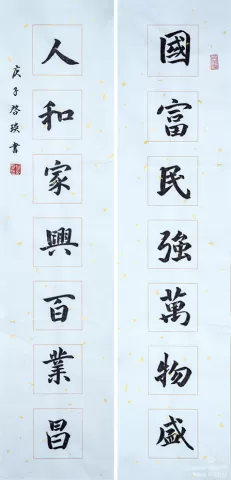 國富民強萬物盛
人和家興百業昌
庚子啓瑛書